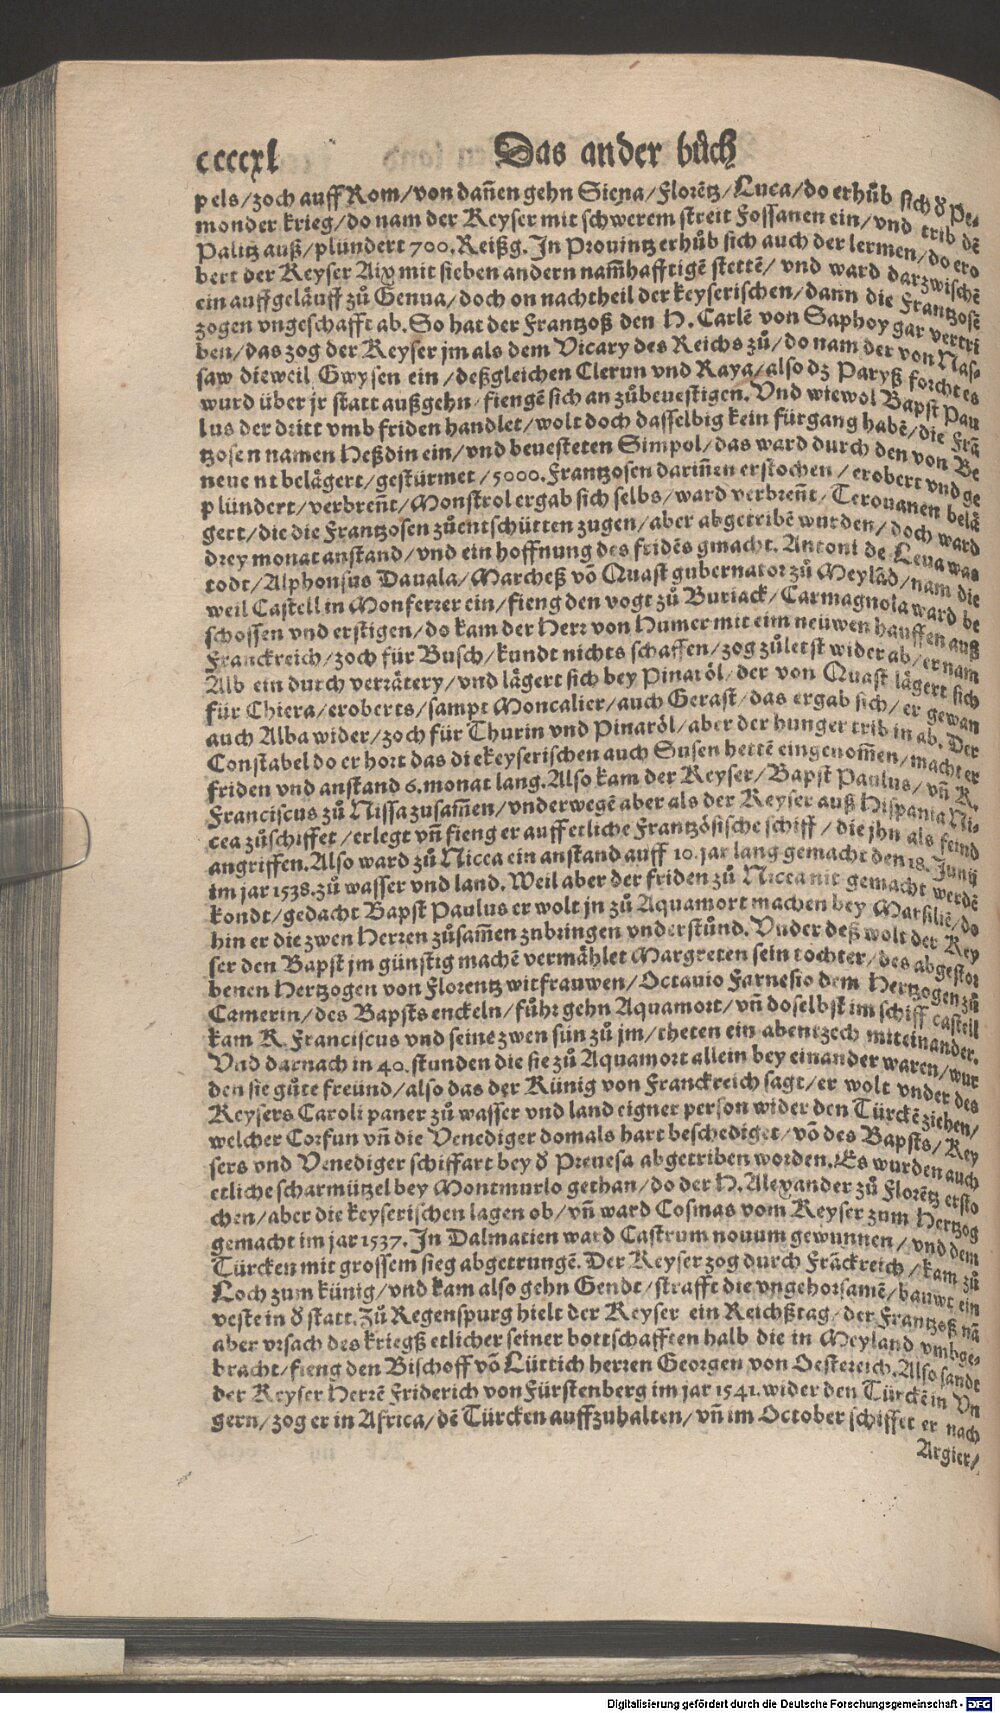 ccccxl
Das ander bůch
pels/zoch auff Rom/von dañen gehn Siena/Florētz/Luca/do erhůb sich ð Pe-
monder krieg/do nam der Keyser mit schwerem streit Fossanen ein/vnd trib dē
Palitz auß/plündert 700. Reißg. In Prouintz erhůb sich auch der lermen/do ero
bert der Keyser Aix mit sieben andern nam̃hafftigē stettē/vnd ward darzwischē
ein auffgeläuff zů Genua/doch on nachtheil der keyserischen/dann die Frantzosē
zogen vngeschafft ab. So hat der Frantzoß den H. Carlē von Saphoy gar vertri
ben/das zog der Keyser jm als dem Vicary des Reichs zů/do nam der von Nas-
saw dieweil Gwysen ein/deßgleichen Clerun vnd Raya/also dz Paryß forcht es
wurd über jr statt außgehn/fiengē sich an zůbeuestigen. Vnd wiewol Bapst Pau
lus der dritt vmb friden handlet/wolt doch dasselbig kein fürgang habē/die Frā
tzosen namen Heßdin ein/vnd beuesteten Simpol/das ward durch den von Be
neuent belägert/gestürmet/5000. Frantzosen darin̄en erstochen/erobert vnd ge
plündert/verbreñt/Monstrol ergab sich selbs/ward verbreñt/Terouanen belä
gert/die die Frantzosen zůentschütten zugen/aber abgetribē wurden/doch ward
drey monat anstand/vnd ein hoffnung des fridēs gmacht. Antoni de Leua was
todt/Alphonsus Dauala/Marcheß vō Quast gubernator zů Meylād/nam die
weil Castell in Monferrer ein/fieng den vogt zů Buriack/Carmagnola ward be
schossen vnd erstigen/do kam der Herr von Humer mit eim neüwen hauffen auß
Franckreich/zoch für Busch/kundt nichts schaffen/zog zůletst wider ab/er nam
Alb ein durch verrätery/vnd lägert sich bey Pinaröl/der von Quast lägert sich
für Chiera/eroberts/sampt Moncalier/auch Gerast/das ergab sich/er gewan
auch Alba wider/zoch für Thurin vnd Pinaröl/aber der hunger trib in ab. Der
Constabel do er hort das die keyserischen auch Susen hettē eingenom̄en/macht er
friden vnd anstand 6. monat lang. Also kam der Keyser/Bapst Paulus/vñ K.
Franciscus zů Nissa zusam̄en/vnderwegē aber als der Keyser auß Hispania Ni-
cea zůschiffet/erlegt vñ fieng er auff etliche Frantzösische schiff/die jhn als feind
angriffen. Also ward zů Nicea ein anstand auff 10. jar lang gemacht den 18. Junij
im jar 1538. zů wasser vnd land. Weil aber der friden zů Nicea nit gemacht werdē
kondt/gedacht Bapst Paulus er wolt jn zů Aquamort machen bey Marsiliē/do
hin er die zwen Herren zůsam̄en zubringen vnderstůnd. Vnder deß wolt der Key
ser den Bapst jm günstig machē vermählet Margreten sein tochter/des abgestor
benen Hertzogen von Florentz witfrauwen/Octauio Farnesio dem Hertzogen zů
Camerin/des Bapsts enckeln/fůhr gehn Aquamort/vñ doselbst im schiff casteil
kam K. Franciscus vnd seine zwen sün zů jm/theten ein abentzech miteinander.
Vnd darnach in 40. stunden die sie zů Aquamort allein bey einander waren/wur
den sie gůte freünd/also das der Künig von Franckreich sagt/er wolt vnder des
Keysers Caroli paner zů wasser vnd land eigner person wider den Türckē ziehen/
welcher Corfun vñ die Venediger domals hart beschediget/vō des Bapsts/Key
sers vnd Venediger schiffart bey ð Preuesa abgetriben worden. Es wurden auch
etliche scharmützel bey Montmurlo gethan/do der H. Alexander zů Florētz ersto
chen/aber die keyserischen lagen ob/vñ ward Cosmas vom Keyser zum Hertzog
gemacht im jar 1537. In Dalmatien ward Castrum nouum gewunnen/vnd dem
Türcken mit grossem sieg abgetrungē. Der Keyser zog durch Frāckreich/kam zů
Loch zum künig/vnd kam also gehn Gendt/strafft die vngehorsamē/bauwt ein
veste in ð statt. Zů Regenspurg hielt der Keyser ein Reichßtag/der Frantzoß nā
aber vrsach des kriegß etlicher seiner bottschafften halb die in Meyland vmbge-
bracht/fieng den Bischoff vō Lüttich herren Georgen von Oestereich. Also sandt
der Keyser Herrē Friderich von Fürstenberg im jar 1541. wider den Türckē in Vn
gern/zog er in Africa/dē Türcken auffzuhalten/vñ im October schiffet er nach
Argier/
Digitalisierung gefördert durch die Deutsche Forschungsgemeinschaft - DFG